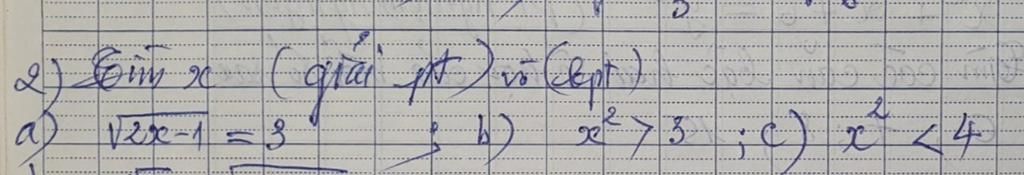 2) Tìm x (giải pt) và (bpt)
a) √2x-1 = 3 ; b) x² > 3 ; c) x² < 4